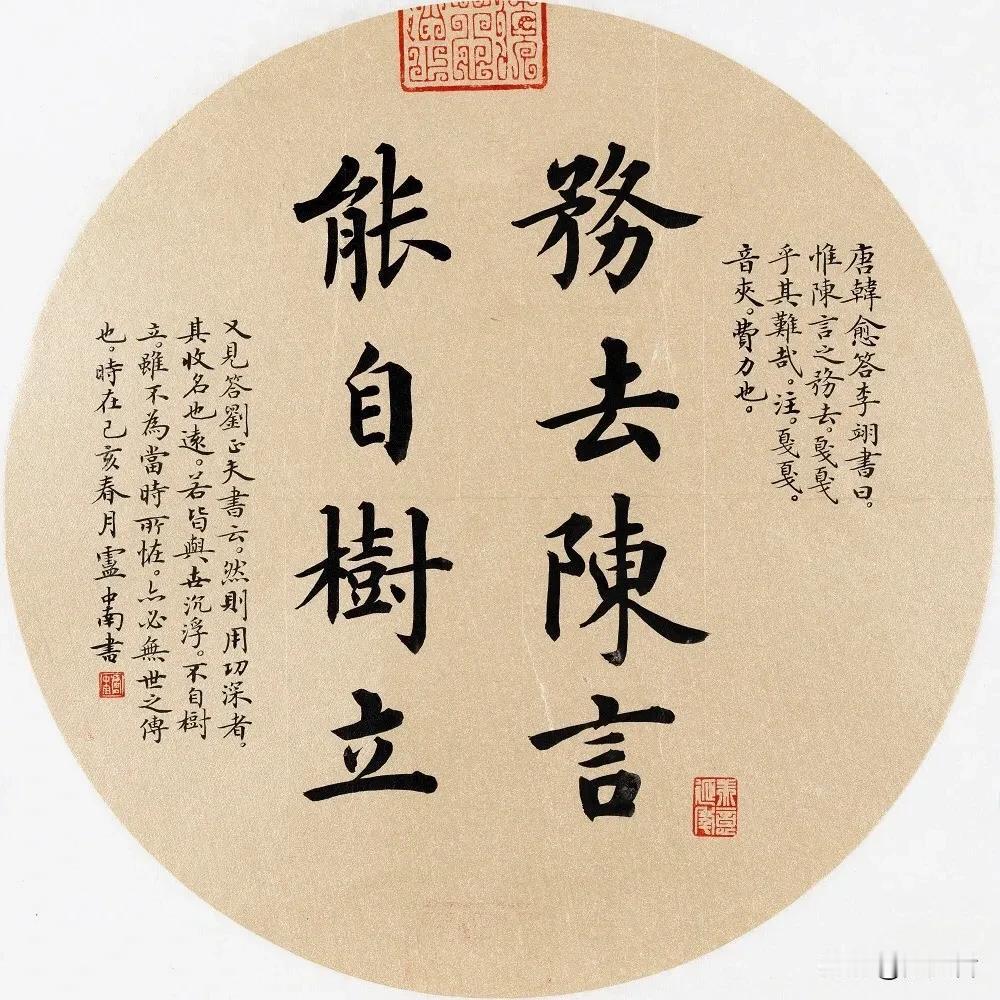 務去陳言
能自樹立
唐韓愈答李翊書曰。
惟陳言之務去。戛戛
乎其難哉。注。戛戛。
音夾。費力也。
又見答劉正夫書云。然則用功深者。
其收名也遠。若皆與世沉浮。不自樹
立。雖不為當時所怪。亦必無世之傳
也。時在己亥春月盧中南書